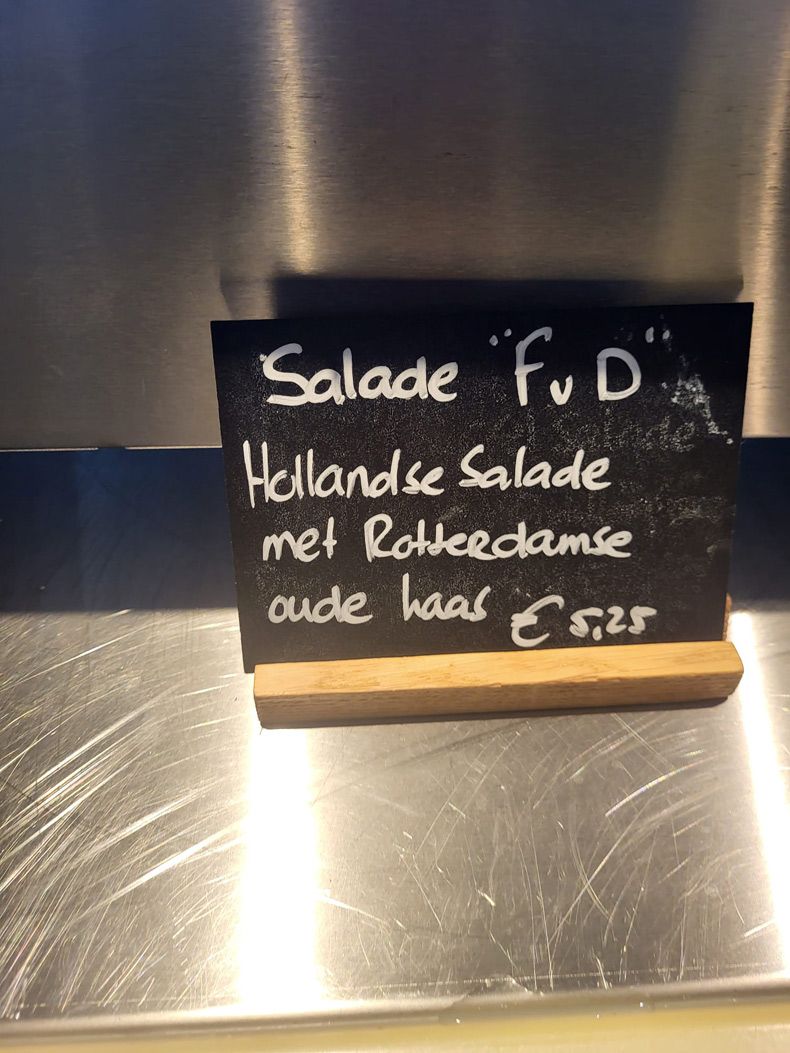 Salade "FvD"
Hollandse Salade
met Rotterdamse
oude haas € 5,25